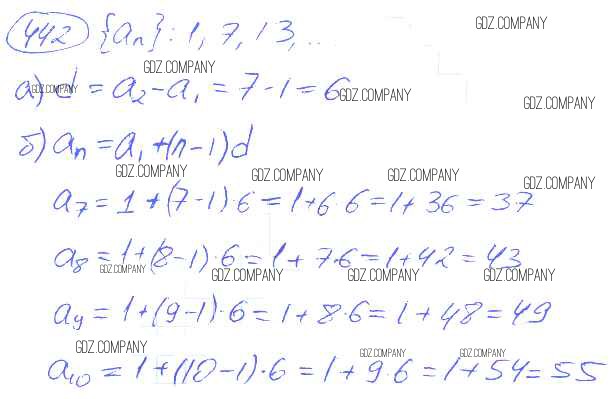 442 {aₙ}: 1, 7, 13, ...
GDZ.COMPANY
GDZ.COMPANY
а) d = a₂ - a₁ = 7 - 1 = 6
GDZ.COMPANY
GDZ.COMPANY
GDZ.COMPANY
б) aₙ = a₁ + (n - 1)d
GDZ.COMPANY
GDZ.COMPANY
GDZ.COMPANY
GDZ.COMPANY
a₇ = 1 + (7 - 1) · 6 = 1 + 6 · 6 = 1 + 36 = 37
a₈ = 1 + (8 - 1) · 6 = 1 + 7 · 6 = 1 + 42 = 43
GDZ.COMPANY
GDZ.COMPANY
GDZ.COMPANY
GDZ.COMPANY
a₉ = 1 + (9 - 1) · 6 = 1 + 8 · 6 = 1 + 48 = 49
GDZ.COMPANY
GDZ.COMPANY
GDZ.COMPANY
a₁₀ = 1 + (10 - 1) · 6 = 1 + 9 · 6 = 1 + 54 = 55